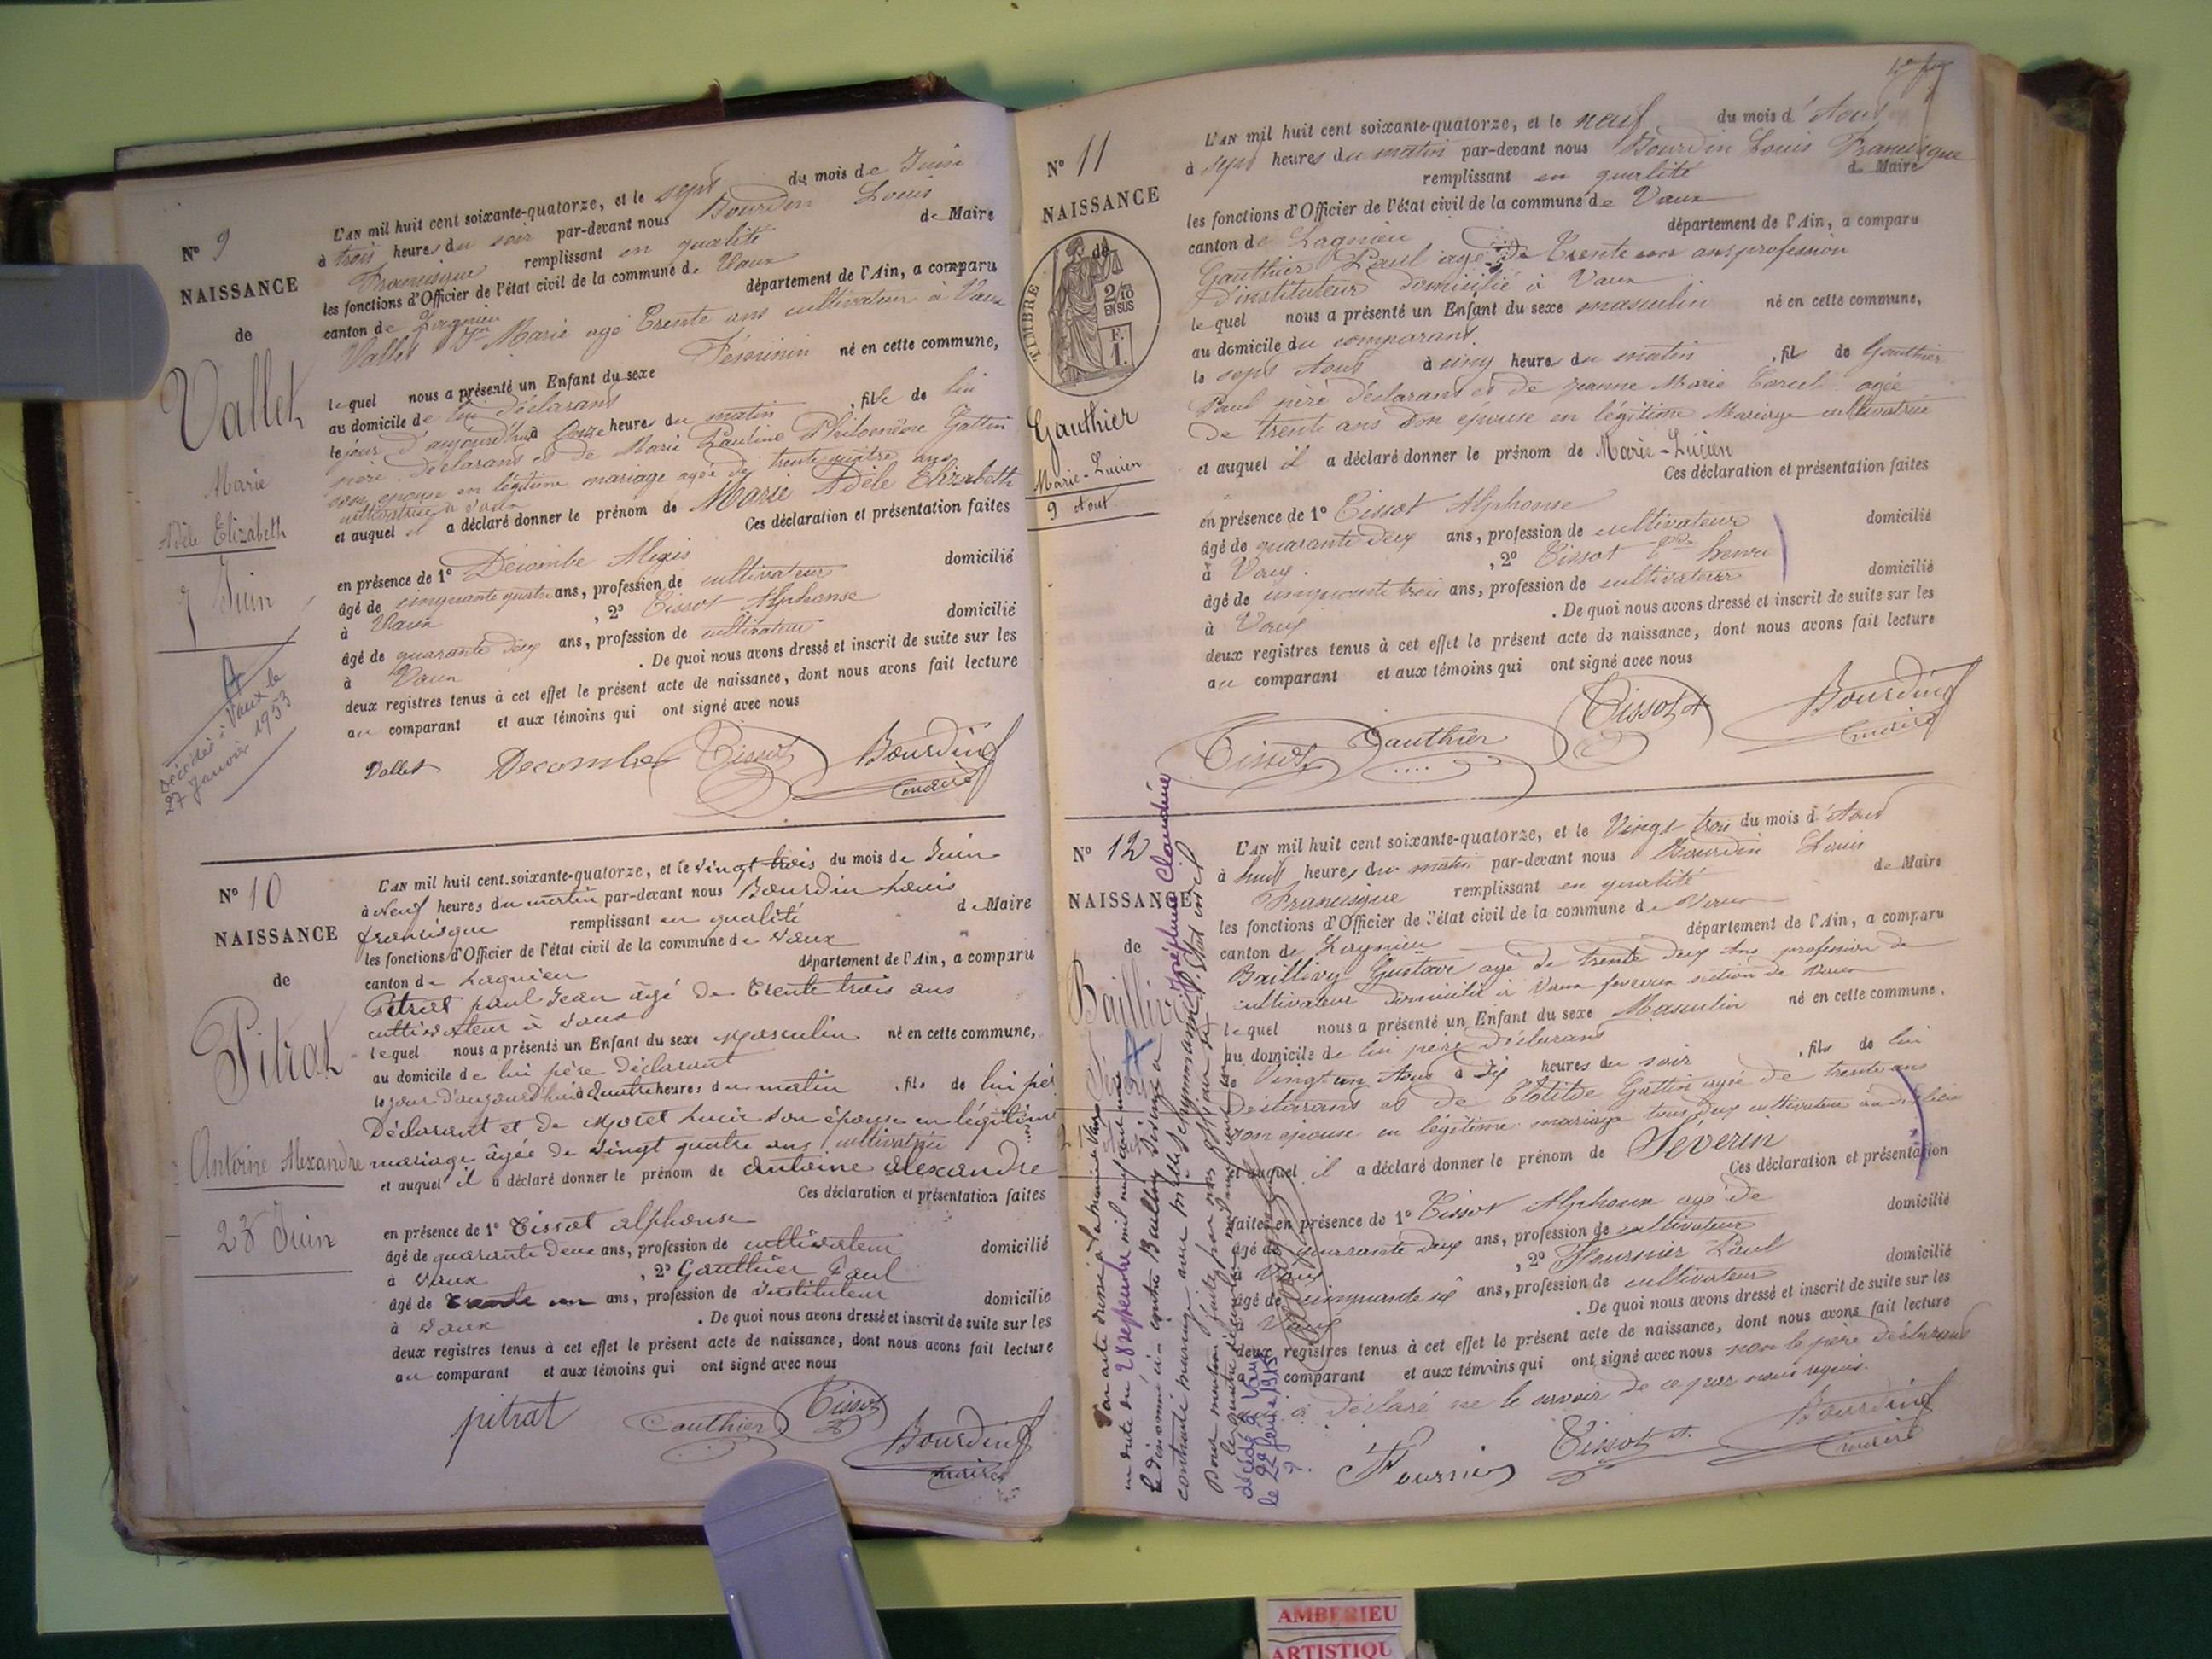 N° 9
NAISSANCE
de
Vallet
Marie
Adèle Elizabeth
7 Juin
Décédée à Vaux le
27 Janvier 1953
L'AN mil huit cent soixante-quatorze, et le sept du mois de Juin
à trois heures du soir par-devant nous Bourdin Louis
Francisque remplissant en qualité de Maire
les fonctions d'Officier de l'état civil de la commune de Vaux
canton de Lagnieu département de l'Ain, a comparu
Vallet Marie agé trente ans cultivateur à Vaux
lequel nous a présenté un Enfant du sexe Féminin né en cette commune,
au domicile de lui déclarant
le jour d'aujourd'hui à Onze heures du matin , fille de lui
père déclarant et de Marie Pauline Philomène Gattin
son épouse en légitime mariage agée de trente quatre ans
cultivatrice à Vaux
et auquel il a déclaré donner le prénom de Marie Adèle Elizabeth
Ces déclaration et présentation faites
en présence de 1° Décombe Alexis
âgé de cinquante quatre ans, profession de cultivateur domicilié
à Vaux , 2° Tissot Alphonse
âgé de quarante deux ans, profession de cultivateur domicilié
à Vaux . De quoi nous avons dressé et inscrit de suite sur les
deux registres tenus à cet effet le présent acte de naissance, dont nous avons fait lecture
au comparant et aux témoins qui ont signé avec nous
Vallet Decombe Tissot Bourdin
maire
N° 10
NAISSANCE
de
Pitrat
Antoine Alexandre
23 Juin
L'AN mil huit cent soixante-quatorze, et le vingt trois du mois de Juin
à neuf heures du matin par-devant nous Bourdin Louis
francisque remplissant en qualité de Maire
les fonctions d'Officier de l'état civil de la commune de Vaux
canton de Lagnieu département de l'Ain, a comparu
Pitrat paul Jean âgé de trente trois ans
cultivateur à Vaux
lequel nous a présenté un Enfant du sexe Masculin né en cette commune,
au domicile de lui père déclarant
le jour d'aujourd'hui à quatre heures du matin , fils de lui père
Déclarant et de Moret Lucie son épouse en légitime
mariage âgée de vingt quatre ans cultivatrice
et auquel il a déclaré donner le prénom de Antoine alexandre
Ces déclaration et présentation faites
en présence de 1° Tissot alphonse
âgé de quarante deux ans, profession de cultivateur domicilié
à Vaux , 2° Gauthier Paul
âgé de trente un ans, profession de Instituteur domicilié
à Vaux . De quoi nous avons dressé et inscrit de suite sur les
deux registres tenus à cet effet le présent acte de naissance, dont nous avons fait lecture
au comparant et aux témoins qui ont signé avec nous
pitrat Gauthier Tissot Bourdin
maire
N° 11
NAISSANCE
de
TIMBRE
2/10
EN SUS
F.
1.
Gauthier
Marie-Lucien
9 Aout
L'AN mil huit cent soixante-quatorze, et le neuf du mois d'Aout
à sept heures du matin par-devant nous Bourdin Louis Francisque
remplissant en qualité de Maire
les fonctions d'Officier de l'état civil de la commune de Vaux
canton de Lagnieu département de l'Ain, a comparu
Gauthier Paul agé de trente un ans profession
d'instituteur domicilié à Vaux
lequel nous a présenté un Enfant du sexe masculin né en cette commune,
au domicile du comparant
le sept Aout à cinq heures du matin , fils de Gauthier
Paul père déclarant et de Jeanne Marie agée
de trente ans son épouse en légitime Mariage cultivatrice
et auquel il a déclaré donner le prénom de Marie-Lucien
Ces déclaration et présentation faites
en présence de 1° Tissot Alphonse
âgé de quarante deux ans, profession de cultivateur domicilié
à Vaux , 2° Tissot
âgé de cinquante trois ans, profession de cultivateur domicilié
à Vaux . De quoi nous avons dressé et inscrit de suite sur les
deux registres tenus à cet effet le présent acte de naissance, dont nous avons fait lecture
au comparant et aux témoins qui ont signé avec nous
Tissot Gauthier Tissot A Bourdin
maire
N° 12
NAISSANCE
de
Baillivy
Par acte dressé à la mairie de Vaux
en date du 28 septembre mil neuf cent
le dénommé ci-contre Baillivy Séverin a
contracté mariage avec Joséphine Claudine
décédé à Vaux
le 22 1915
L'AN mil huit cent soixante-quatorze, et le Vingt trois du mois d'Aout
à huit heures du matin par-devant nous Bourdin Louis
Francisque remplissant en qualité de Maire
les fonctions d'Officier de l'état civil de la commune de Vaux
canton de Lagnieu département de l'Ain, a comparu
Baillivy Gustave agé de trente deux ans profession de
cultivateur domicilié à Vaux section de Vaux
lequel nous a présenté un Enfant du sexe Masculin né en cette commune,
au domicile de lui père déclarant
le Vingt un Aout à dix heures du soir , fils de lui
déclarant et de Clotilde Gattin agée de trente ans
son épouse en légitime mariage tous deux cultivateurs
et auquel il a déclaré donner le prénom de Séverin
Ces déclaration et présentation
faites en présence de 1° Tissot Alphonse agé de
âgé de quarante deux ans, profession de cultivateur domicilié
à Vaux , 2° Fournier Paul
âgé de cinquante six ans, profession de cultivateur domicilié
à Vaux . De quoi nous avons dressé et inscrit de suite sur les
deux registres tenus à cet effet le présent acte de naissance, dont nous avons fait lecture
au comparant et aux témoins qui ont signé avec nous non le père déclarant
qui a déclaré ne le savoir de ce par nous requis.
Fournier Tissot A. Bourdin
maire
AMBERIEU
ARTISTIQU